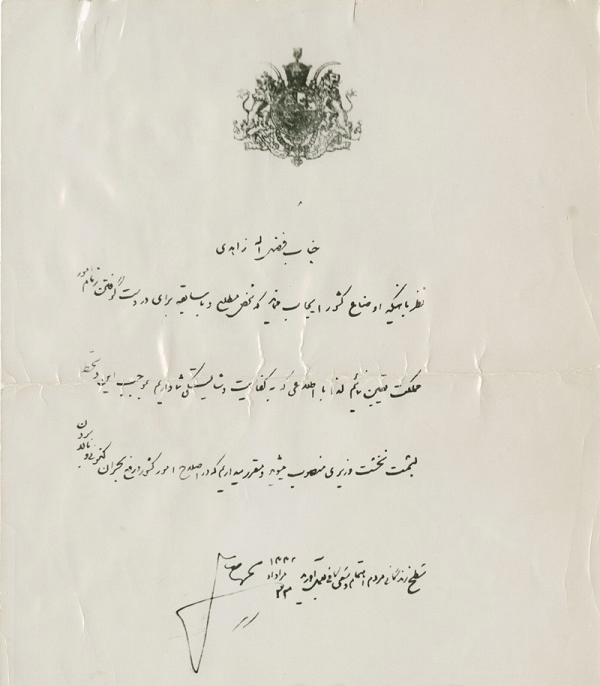 جناب فضل اله زاهدی
نظر باینکه اوضاع کشور ایجاب مینماید که شخص مطلع و باسابقه برای در دست گرفتن زمام امور
مملکت تعیین نمائیم لذا با اطلاعی که به کفایت و شایستگی شما داریم بموجب این دستخط
بسمت نخست وزیری منصوب میشوید و مقرر میداریم که در اصلاح امور کشور و رفع بحران کنونی و بالا بردن
سطح زندگانی مردم اهتمام و سعی کافی بعمل آورید
۱۳۳۲
مرداد ماه